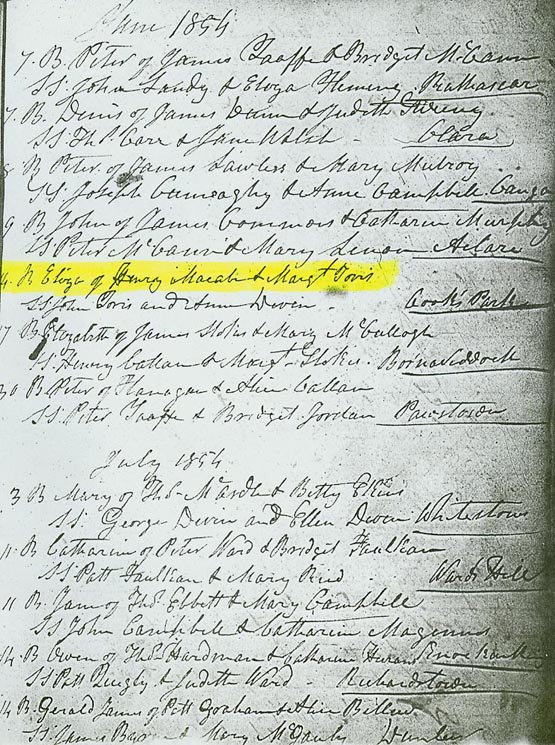 June 1854
7. B. Peter of James Taaffe & Bridget McCann
SS. John Landy & Eloza Fleming. Rathescar
7. B. Denis of James Dunn & Judith
SS. Thos. Carr & Jane Welch - Clara
8 B Peter of James Lawless & Mary Mulroy
SS Joseph & Anne Campbell
9 B John of James Commons & Catharin Murphy
SS Peter McCann & Mary Aclare
B. Eloza of Henry Macab & Margt Joris
SS John Joris and Ann Diven - Cooks Park
17 B Elizabeth of James Stokes & Mary McCullogh
SS. Henry Callan & Margt Stokes.
30 B Peter of Flanagan & Callan
SS. Peter Taaffe & Bridget Jordan Paustown
July 1854
3 B Mary of Thos McArdle & Betty
SS. George Diven and Ellen Diven Whitestown
11 B Catharin of Peter Ward & Bridget Faulkan
SS Patt Faulkan & Mary Reid Wards Hill
11 B. Jane of Thos Elbett & Mary Campbell
SS John Campbell & Catharin Magennis
14 B Owen of Thos Hardman & Catharin
SS Patt & Judith Ward - Richardstown
14 B. Gerald James of Patt Graham &
SS. James & Mary Dunleer